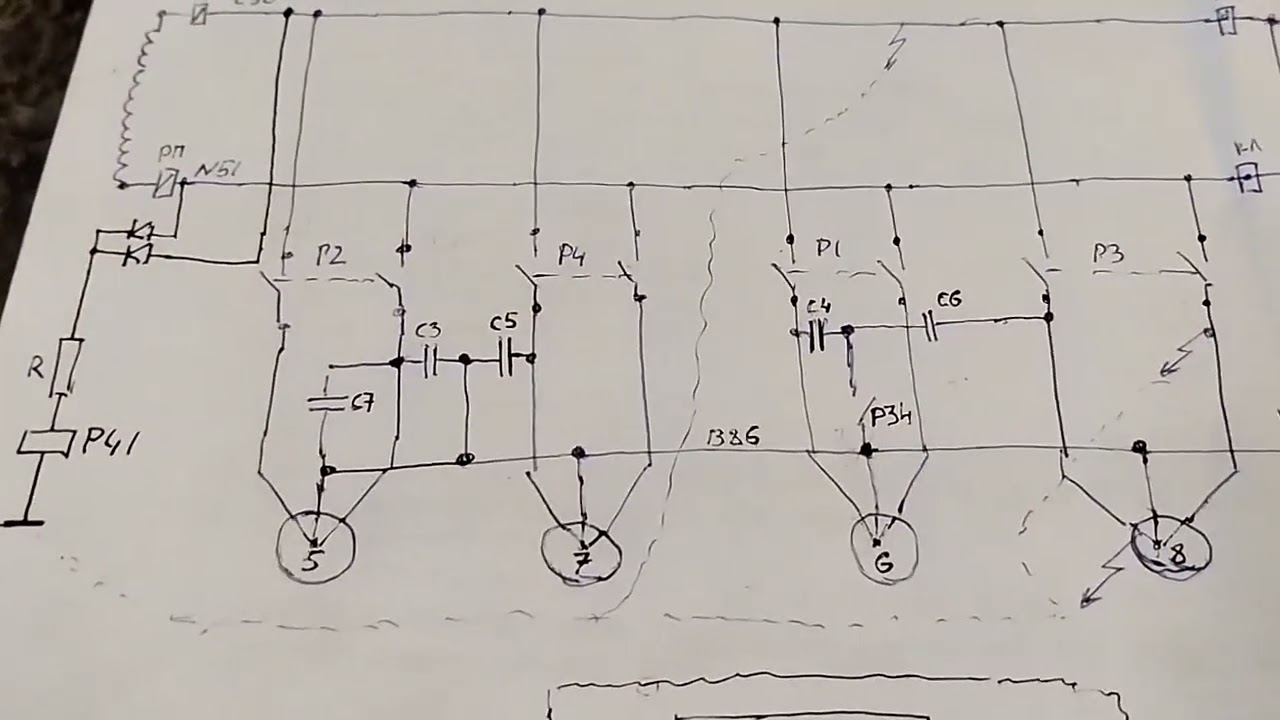 РП
N51
КЛ
P2
P4
P1
P3
C3
C5
C4
C6
R
C7
P34
P41
B86
5
7
6
8